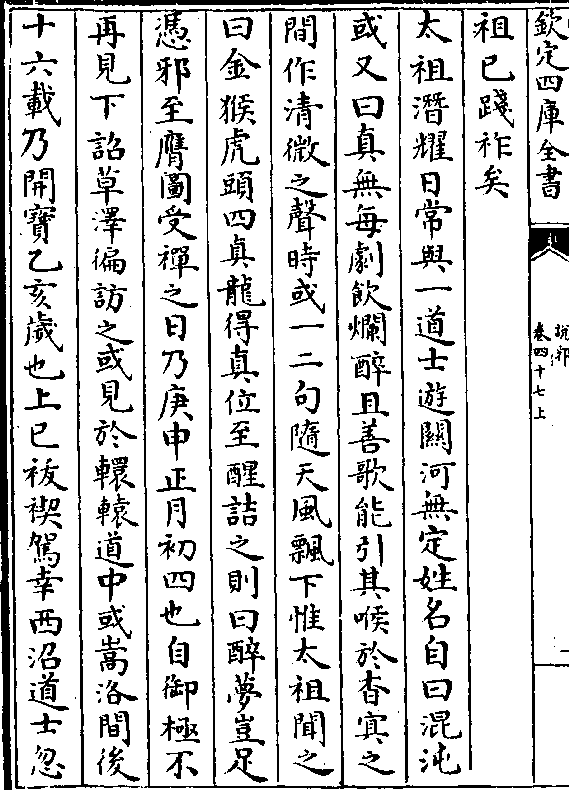 欽定四庫全書
說郛
卷四十七上
一
祖已踐祚矣
太祖潛耀日常與一道士遊關河無定姓名自曰混沌
或又曰真無每劇飲爛醉且善歌能引其喉於杳㝠之
間作清微之聲時或一二句隨天風飄下惟太祖聞之
曰金猴虎頭四真龍得真位至醒詰之則曰醉夢豈足
憑邪至膺圖受禪之日乃庚申正月初四也自御極不
再見下詔草澤徧訪之或見於轘轅道中或嵩洛間後
十六載乃開寶乙亥歲也上巳祓禊駕幸西沼道士忽